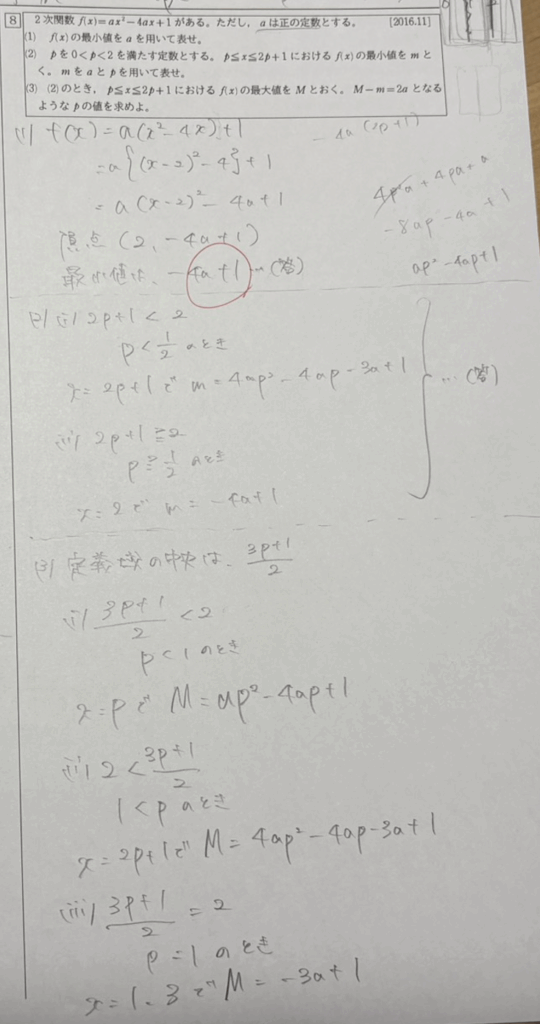 8 2次関数 f(x)=ax²-4ax+1 がある。ただし，aは正の定数とする。 [2016.11]
(1) f(x)の最小値をaを用いて表せ。
(2) pを0<p<2を満たす定数とする。p≦x≦2p+1におけるf(x)の最小値をmとお
く。mをaとpを用いて表せ。
(3) (2)のとき，p≦x≦2p+1におけるf(x)の最大値をMとおく。M-m=2aとなる
ようなpの値を求めよ。
(1) f(x)=a(x²-4x)+1
=a{(x-2)²-4}+1
=a(x-2)²-4a+1
頂点(2, -4a+1)
最小値は、-4a+1 …(答)
-4a(2p+1)
4p²a+4pa+a
-8ap-4a+1
ap²-4ap+1
(2) (i) 2p+1<2
p<1/2 のとき
x=2p+1で m=4ap²-4ap-3a+1
(ii) 2p+1≧2
p≧1/2 のとき
x=2で m=-4a+1
…(答)
(3) 定義域の中央は、(3p+1)/2
(i) (3p+1)/2<2
p<1 のとき
x=pで M=ap²-4ap+1
(ii) 2<(3p+1)/2
1<p のとき
x=2p+1で M=4ap²-4ap-3a+1
(iii) (3p+1)/2=2
p=1 のとき
x=1、3で M=-3a+1